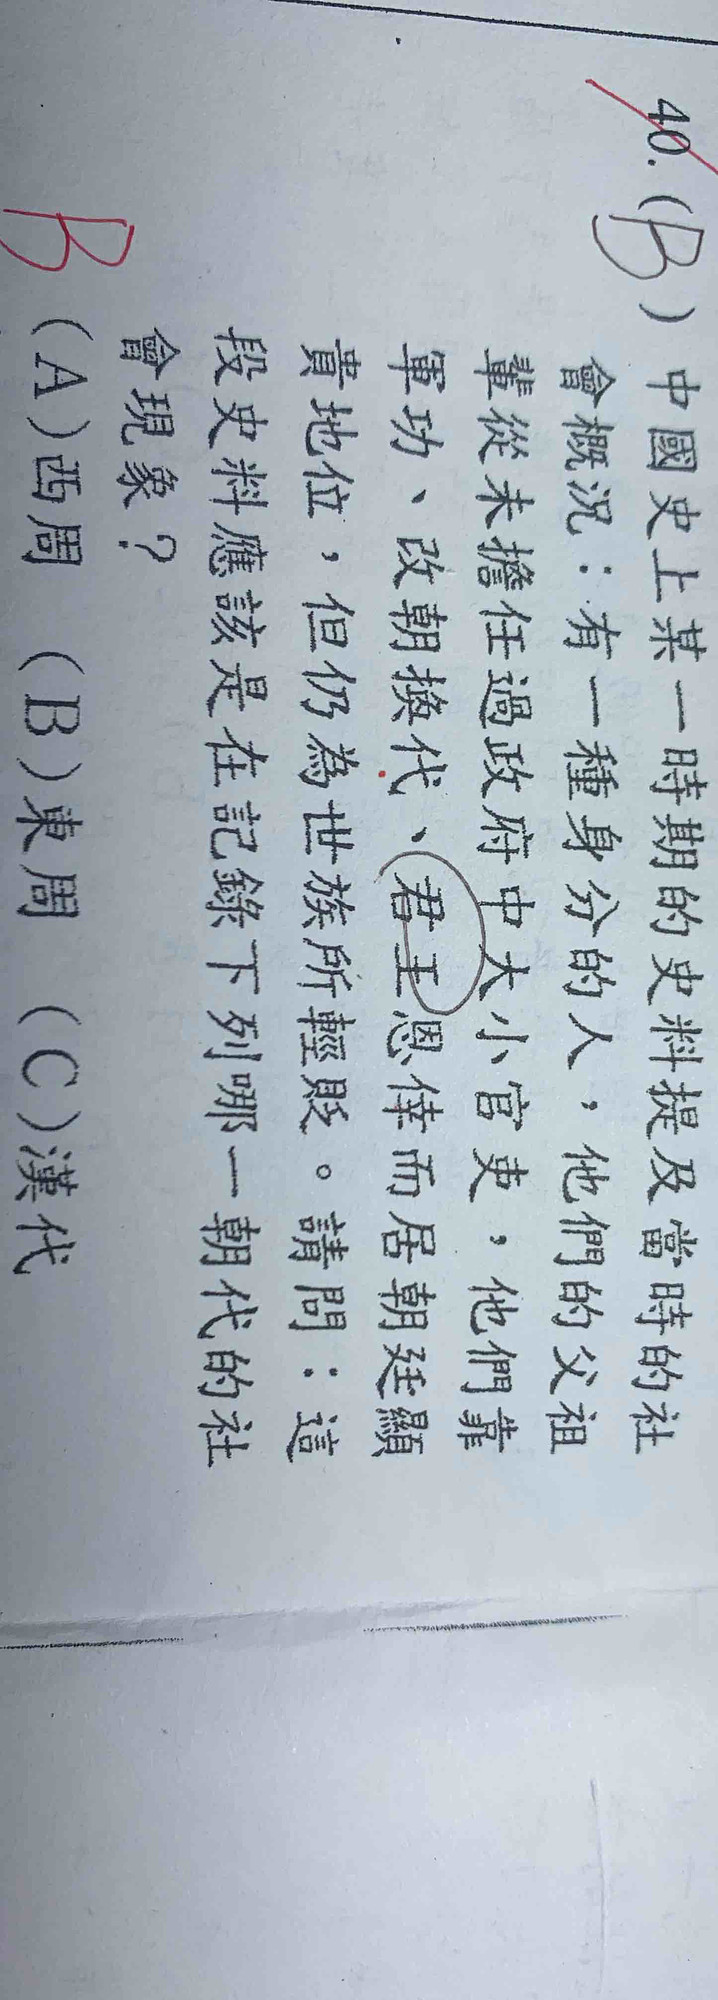 40.(B)中國史上某一時期的史料提及當時的社
會概況：有一種身分的人，他們的父祖
輩從未擔任過政府中大小官吏，他們靠
軍功、改朝換代、君王恩倖而居朝廷顯
貴地位，但仍為世族所輕貶。請問：這
段史料應該是在記錄下列哪一朝代的社
會現象？
B
(A)西周 (B)東周 (C)漢代